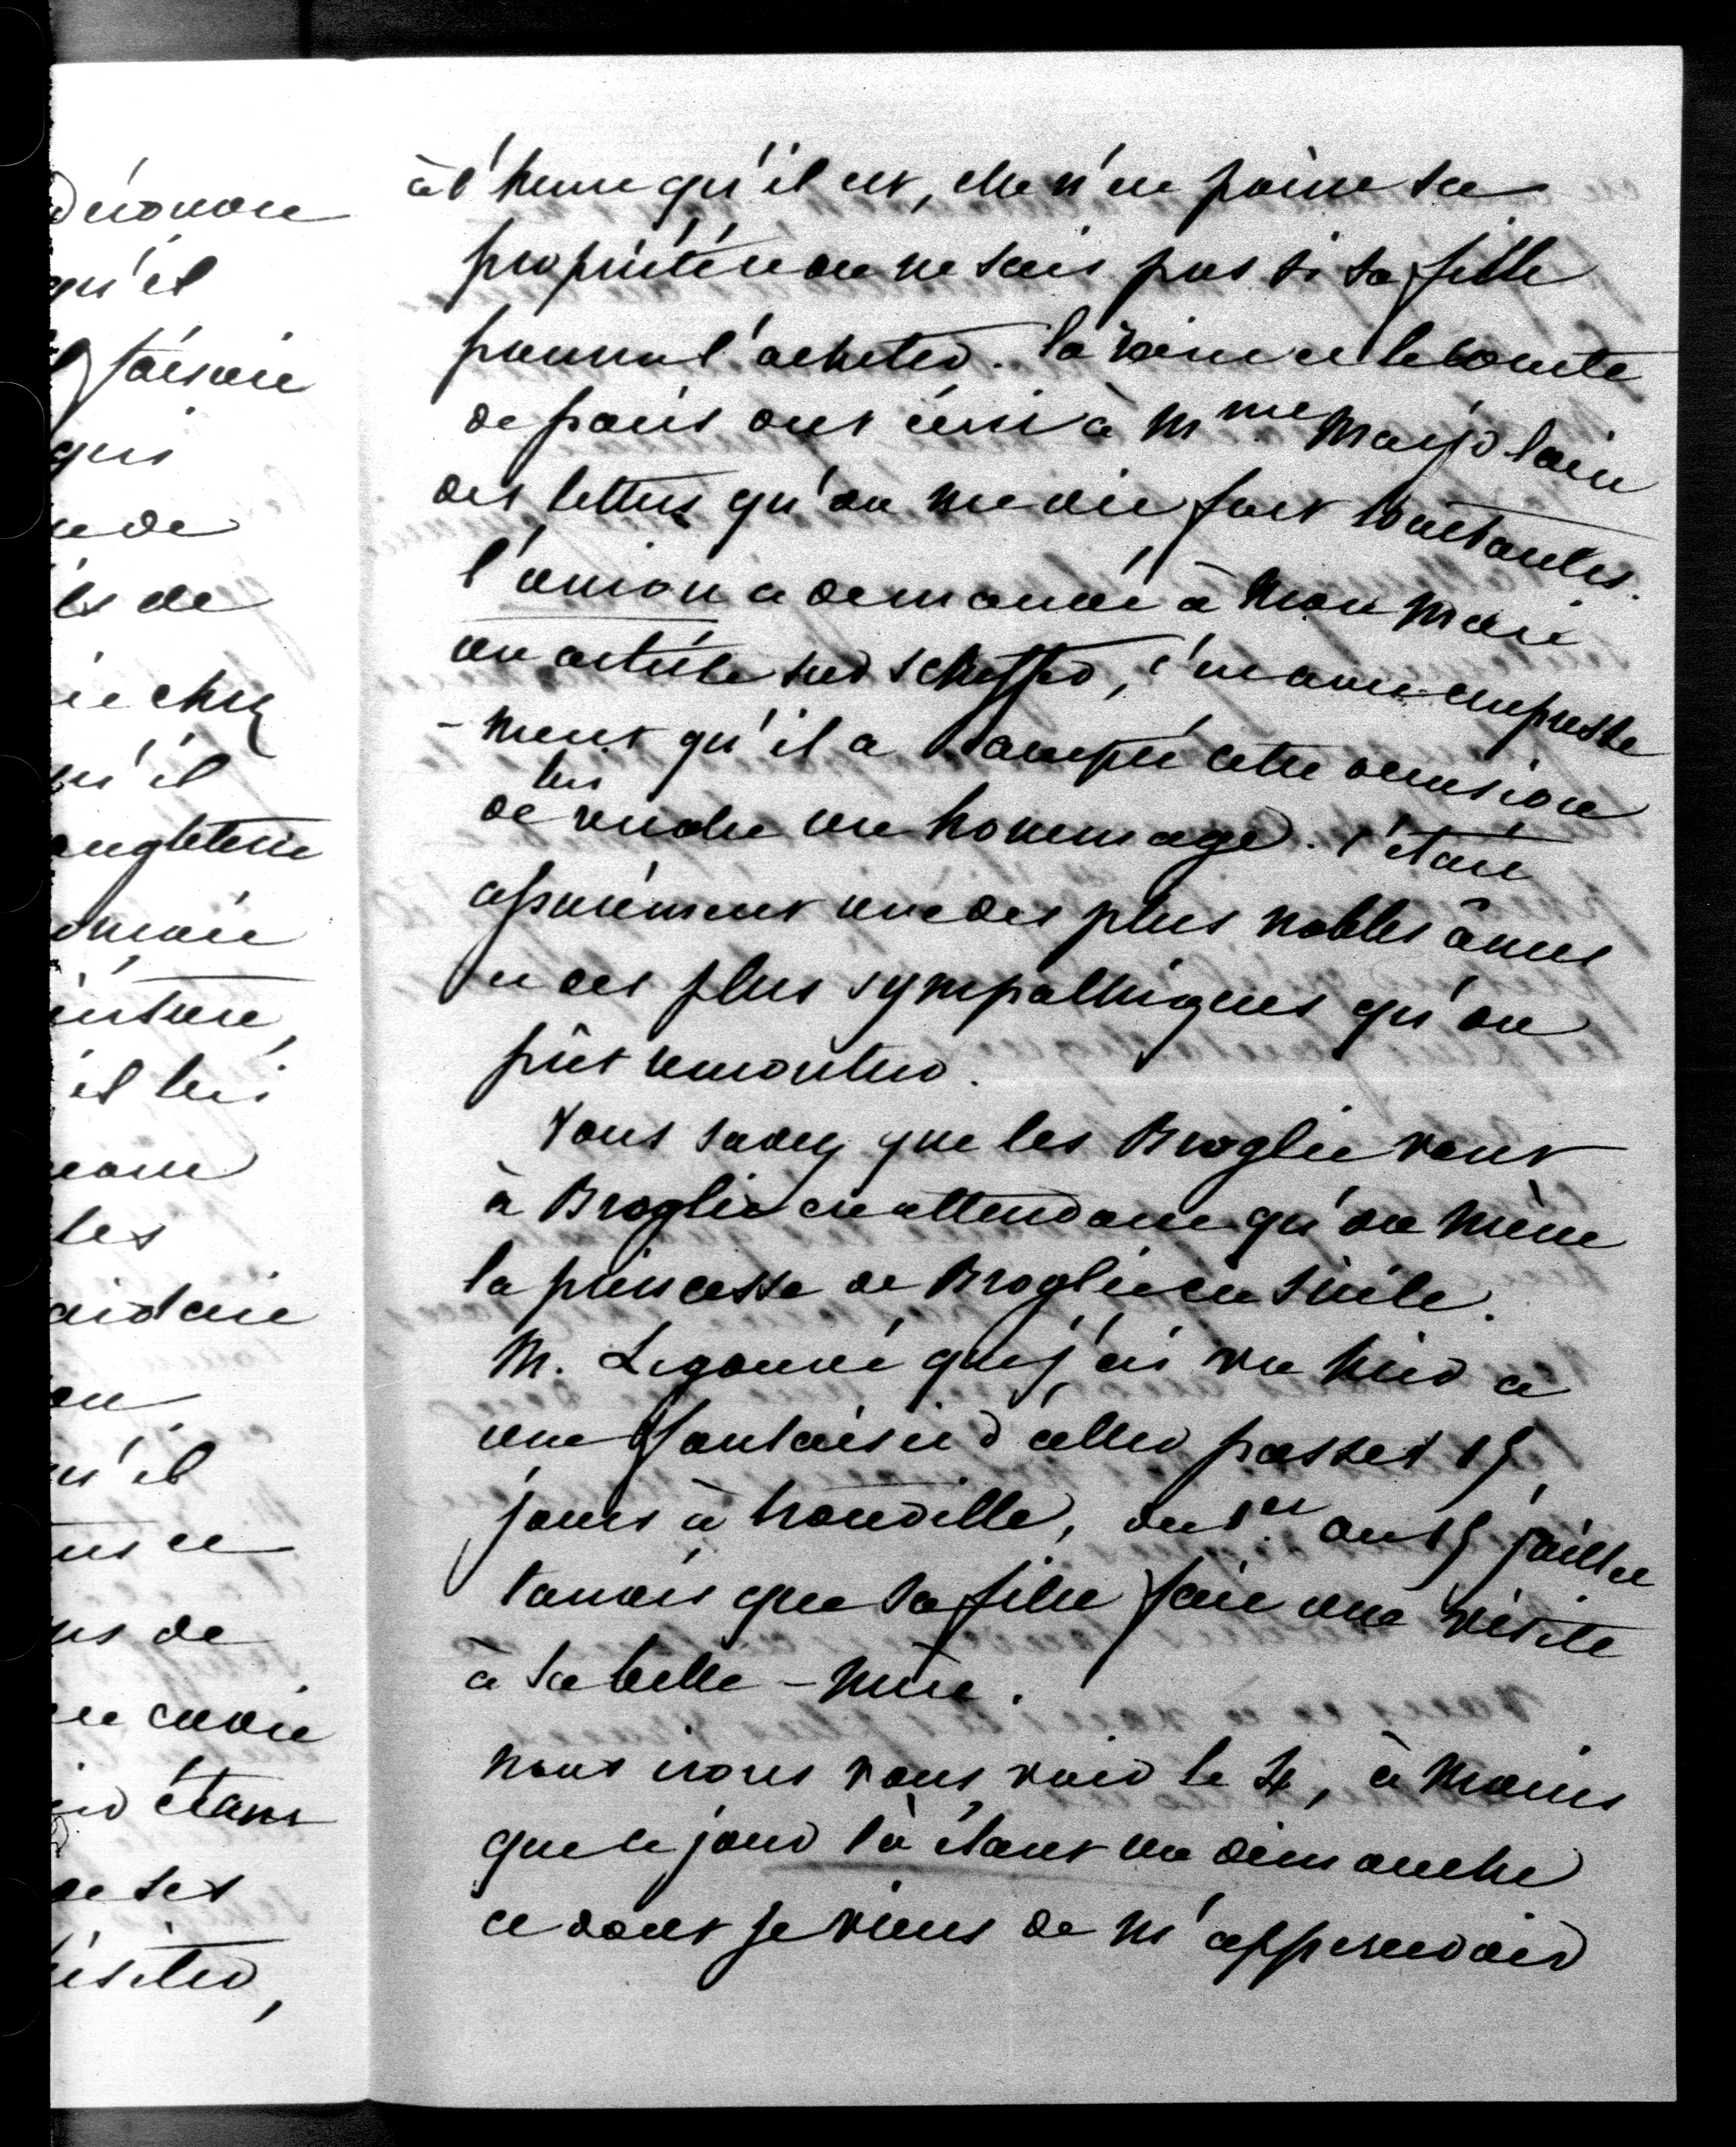 à l'heure qu'il est, elle n'en point sa
propriétée on ne sais pas si sa fille
pourra l'acheter. la reine et le comte
de paris ont écrit à Mme Marjolain
des lettres qu'on me dit fort touchantes.
l'union a demandé à mon mari
un article sur scheffer, c'en avec empresse
-ment qu'il a accepté cette occasion
de lui rendre un hommage. c'était
assurément une des plus nobles âmes
et des plus sympathiques qu'on
pût rencontrer.
Vous savez que les Broglie vont
à Broglie en attendant qu'on mène
la princesse de Broglie en Sicile.
M. Legouvé que j'ai vu hier a
une fantaisie d'aller passer 15
jours à trouville, du 1er au 15 juillet
tandis que sa fille fait une visite
à sa belle-mère.
nous irons vous voir le 4, à moins
que ce jour là étant un dimanche
ce dont je viens de m'appercevoir
qu'il
qui
de
ls de
ie chez
qu'il
angleterre
il lui
les
qu'il
us de
étant
de ses